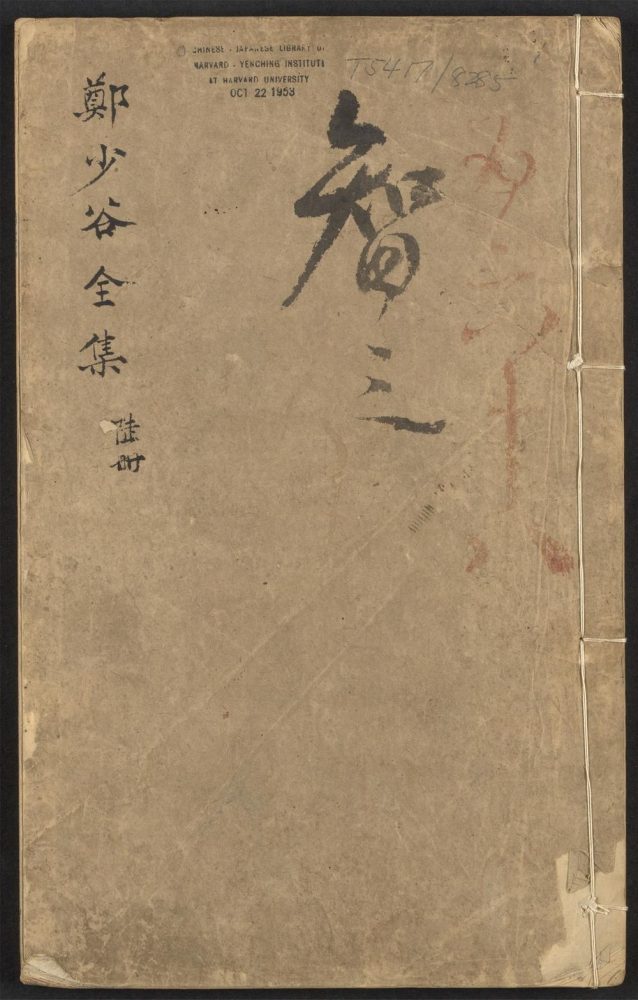 CHINESE - JAPANESE LIBRARY OF
HARVARD - YENCHING INSTITUTE
AT HARVARD UNIVERSITY
OCT 22 1953
T5417/8285
智三
鄭少谷全集
陸冊